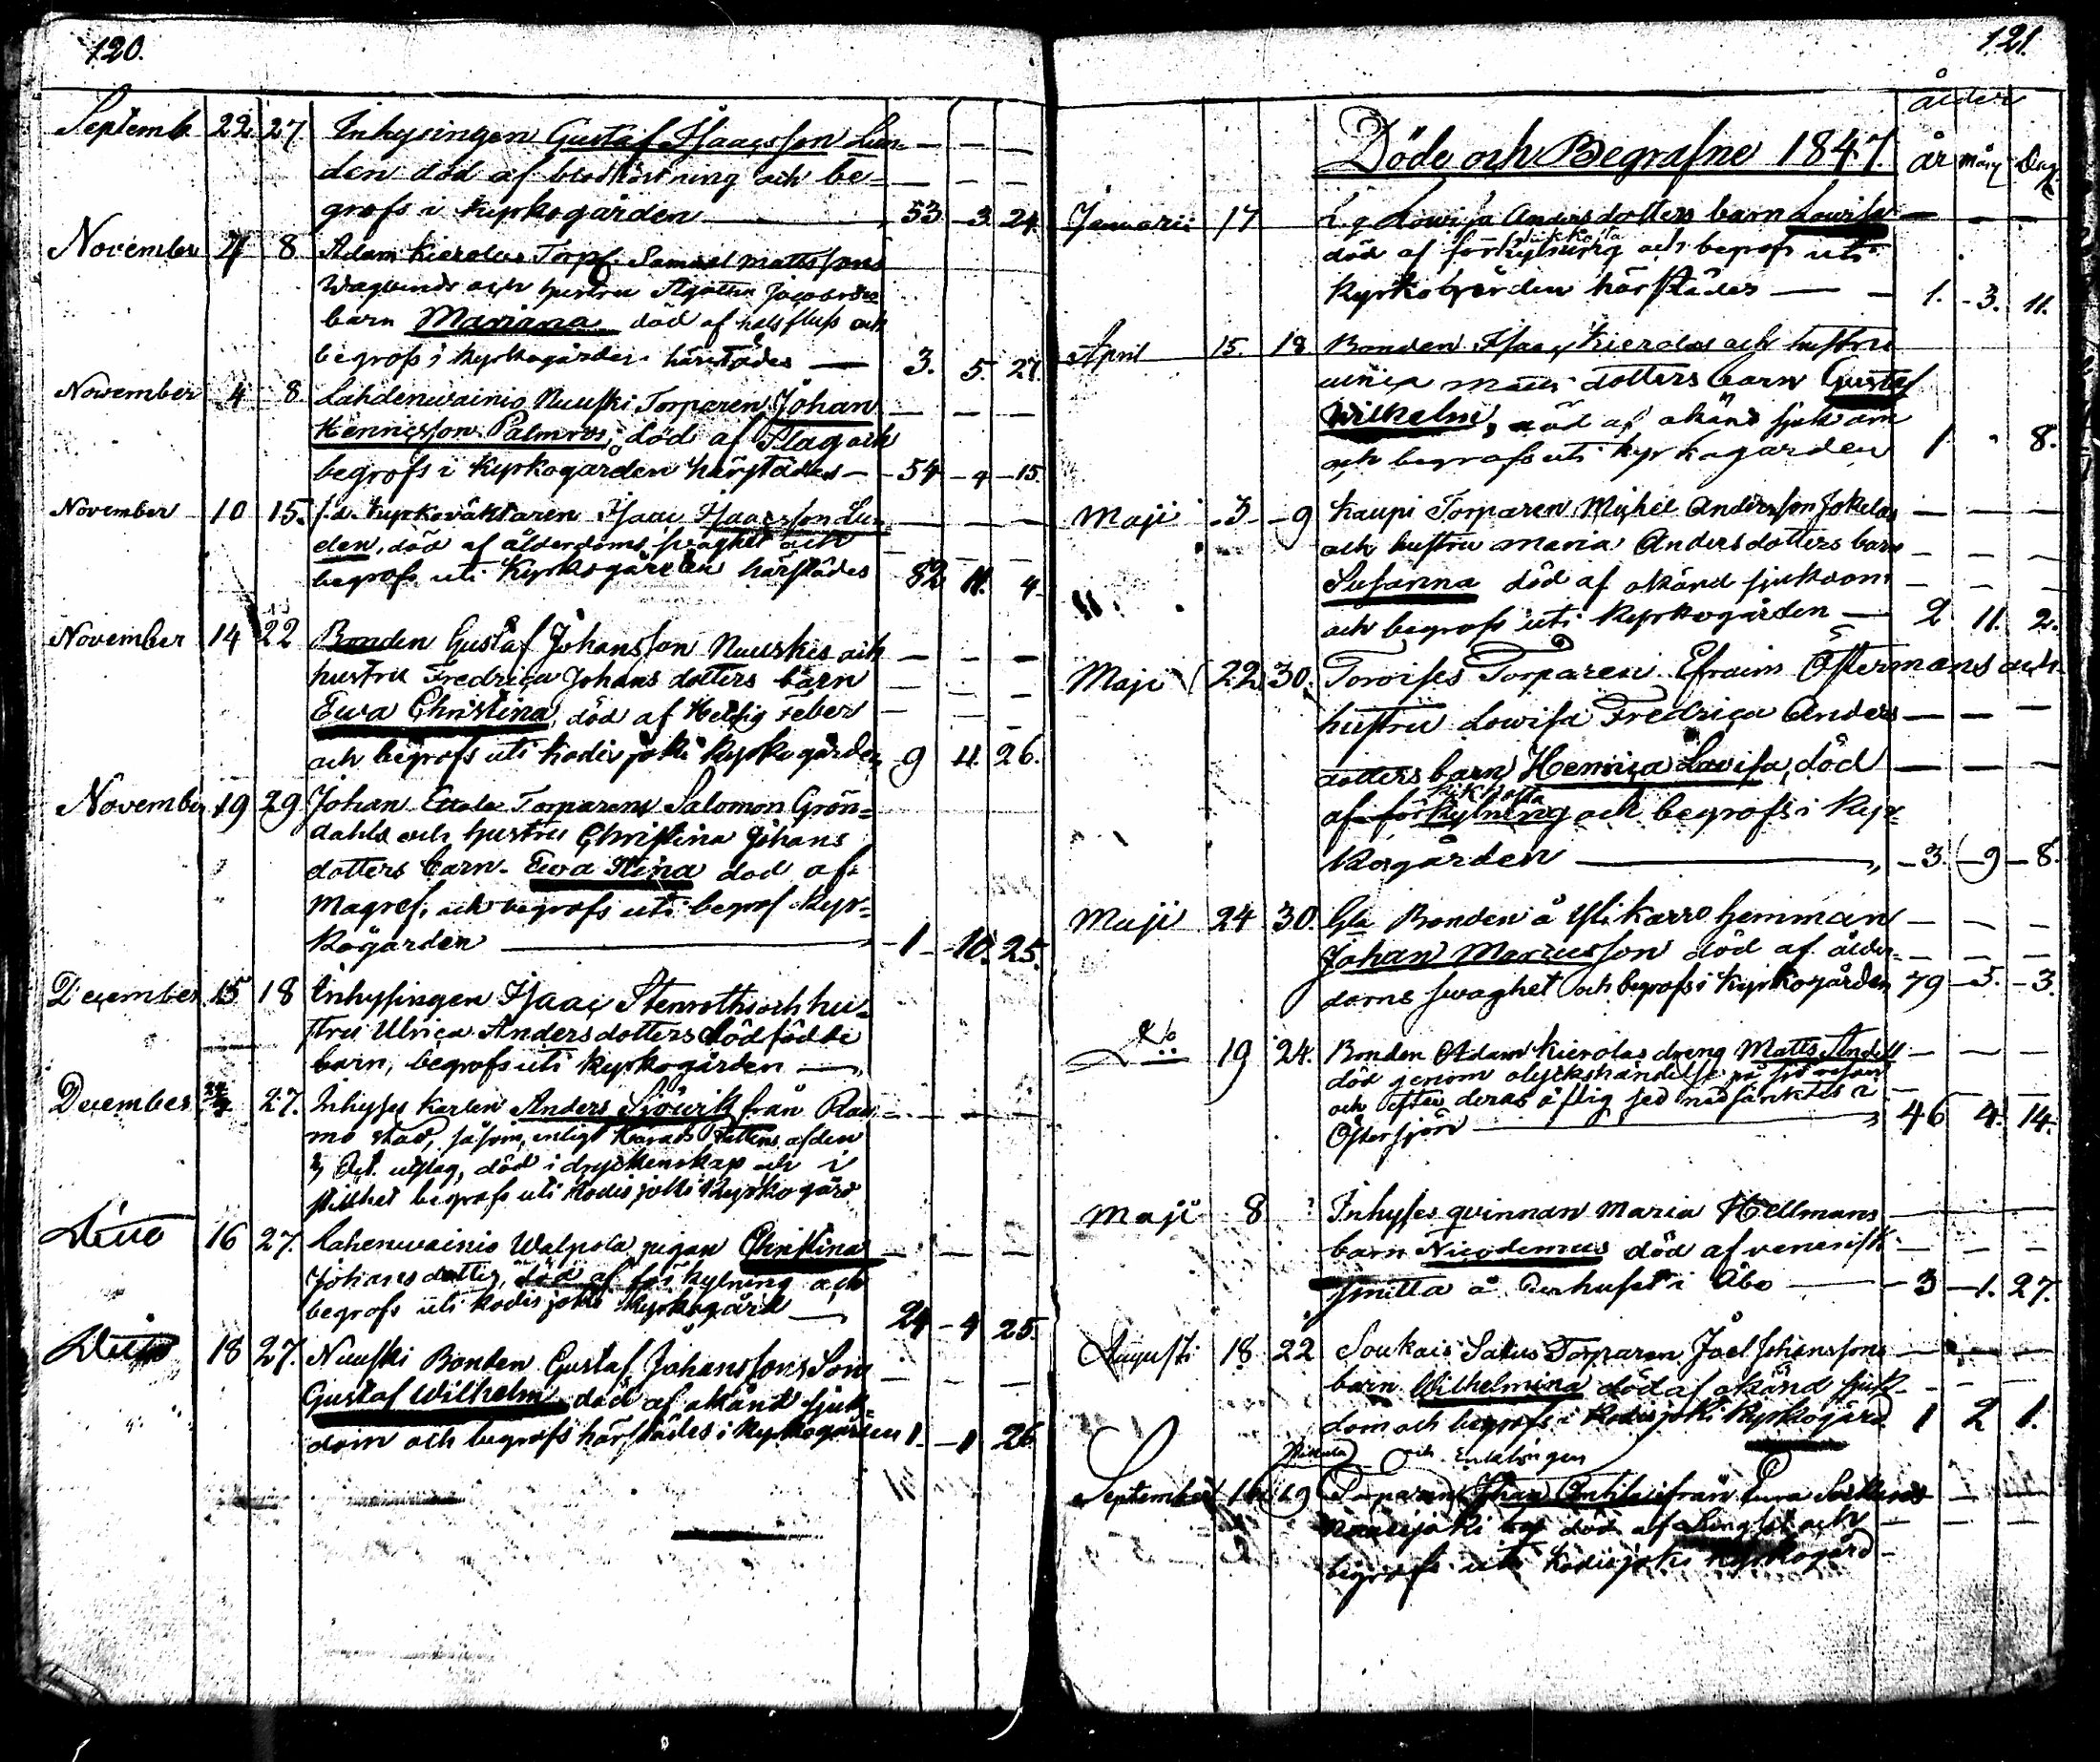 120.
Septemb 22. 27 Inhysingen Gustaf Isaacsson Lun-
den död af brodtöstning och be-
grofs i Kyrkogården 53 3 24
November 4 8 Adam Kierolas Torp. Samuel Mattssons
Waglunds och hustru Agatha Jacobsdrs
barn Mariana död af halsfluss och
begrofs i Kyrkogården härstädes 3. 5. 27.
November 4 8 Lahdenwainio Nuuski Torparen Johan
Henricsson Palmros, död af Slag och
begrofs i Kyrkogården härstädes 54 4 15.
November 10 15. f.d. Kyrkoväktaren Isaac Isaacsson Lun-
den, död af ålderdoms svaghet och
begrofs uti Kyrkogården härstädes 82 11. 4
November 14 22 Bonden Gustaf Johansson Nuuskis och
hustru Fredrica Johans dotters barn
Ewa Christina, död af Hetsig Feber
och begrofs uti Kodisjoki Kyrkogården 9 11. 26.
November 19 29 Johan Ettala Torparens Salomon Grön-
dahls och hustru Christina Johans
dotters barn Ewa Stina död af
Magref, och begrofs uti begrof Kyr-
kogården 1 10. 25.
December 15 18 Inhysingen Isaac Stenroths och hu-
stru Ulrica Anders dotters dödfödde
barn, begrofs uti Kyrkogården
December 27. Inhyses Karlen Anders Siöwik från Rau-
mo stad, såsom, enligt Härads Rättens af den
Oct. utslag, död i dryckenskap och i
stillhet begrofs uti Kodisjoki Kyrkogård
Ditto 16 27. Lahenwainio Walpola pigan Christina
Johans dotter, död af förkylning och
begrofs uti Kodisjoki Kyrkogård 24 4 25.
Ditto 18 27. Nuuski Bonden Gustaf Johanssons Son
Gustaf Wilhelm död af okänd sjuk-
dom och begrofs härstädes i Kyrkogården 1. 1 26
121.
ålder
Döde och Begrafne 1847. år mån Dag
Januarii 17 L.q. Lowisa Anders dotters barn Lowisa
kikhosta
död af förkylning och begrofs uti
Kyrkogården härstädes 1. 3. 11.
April 15. 18 Bonden Isaac Kierolas och hustru
Matts dotters barn Gustaf
Wilhelm, död af okänd sjukdom
och begrofs uti Kyrkogården 1 8.
Maji 3 9 Kaupi Torparen Michel Andersson Jokelas
och hustru Maria Anders dotters barn
Susanna död af okänd sjukdom
och begrofs uti Kyrkogården 2 11. 2.
Maji 22 30. Toroises Torparen Efraim Östermans och
hustru Lowisa Fredrica Anders
dotters barn Henrica Lovisa, död
kikhosta
af förkylning och begrofs i Kyr-
kogården 3. 9 8.
Maji 24 30. Gla Bonden å Ylikarro hemman
Johan Marcusson död af ålder-
doms swaghet och begrofs i Kyrkogården 79 5. 3.
19 24. Bonden Adam Kierolas dreng Matts Andell
död genom olyckshändelse på sjöresan
och efter deras öflig sed nedsänktes i
Östersjön 46 4. 14.
Maji 8 Inhyses qvinnan Maria Hellmans
barn Nicodemus död af venerisk
smitta å Curhuset i Åbo 3 1. 27.
Augusti 18 22 Soukais Satus Torparen Joel Johanssons
barn Wilhelmina död af okänd sjuk-
dom och begrofs i Kodisjoki Kyrkogård 1 2 1.
och Enklingen
September 16 19 Torparen Isaac Anttila från Eura Sockens
död af Lungsot och
begrofs uti Kodisjoki Kyrkogård